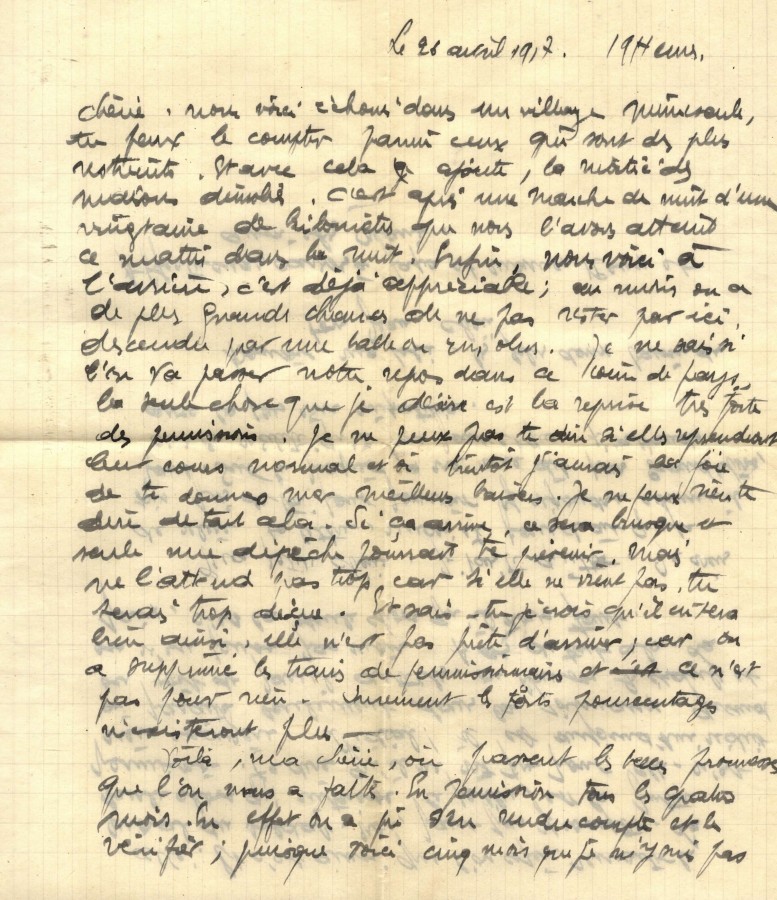 Le 28 avril 1917. 19 Heures.
Chérie, nous voici échoués dans un village minuscule,
tu peux le compter parmi ceux qui sont des plus
restreints. Et avec cela ajoute, la moitié des
maisons démolies. C'est après une marche de nuit d'une
vingtaine de kilomètres que nous l'avons atteint
ce matin dans la nuit. Enfin, nous voici à
l'arrière, c'est déjà appréciable; au moins on a
de plus grandes chances de ne pas rester par ici,
descendu par une balle ou un obus. Je ne sais si
l'on va passer notre repos dans ce coin de pays
la seule chose que je désire est la reprise très forte
des permissions. Je ne peux pas te dire si elles reprendront
leur cours normal et si bientôt j'aurai la joie
de te donner mes meilleurs baisers. Je ne peux rien te
dire de tout cela. Si ça arrive, ce sera brusque et
seule une dépêche pourrait te prévenir, mais
ne l'attend pas trop, car si elle ne vient pas, tu
serais trop déçue. Et sais-tu je crois qu'il en sera
bien ainsi, elle n'est pas prête d'arriver, car on
a supprimé les trains de permissionnaires et ce n'est
pas pour rien. les forts pourcentages
n'existeront plus —
Voilà, ma chérie, où passent les belles promesses
que l'on nous a faites. En permission tous les quatre
mois. En effet on a pu s'en rendre compte et le
vérifier; puisque voici cinq mois que je n'y suis pas